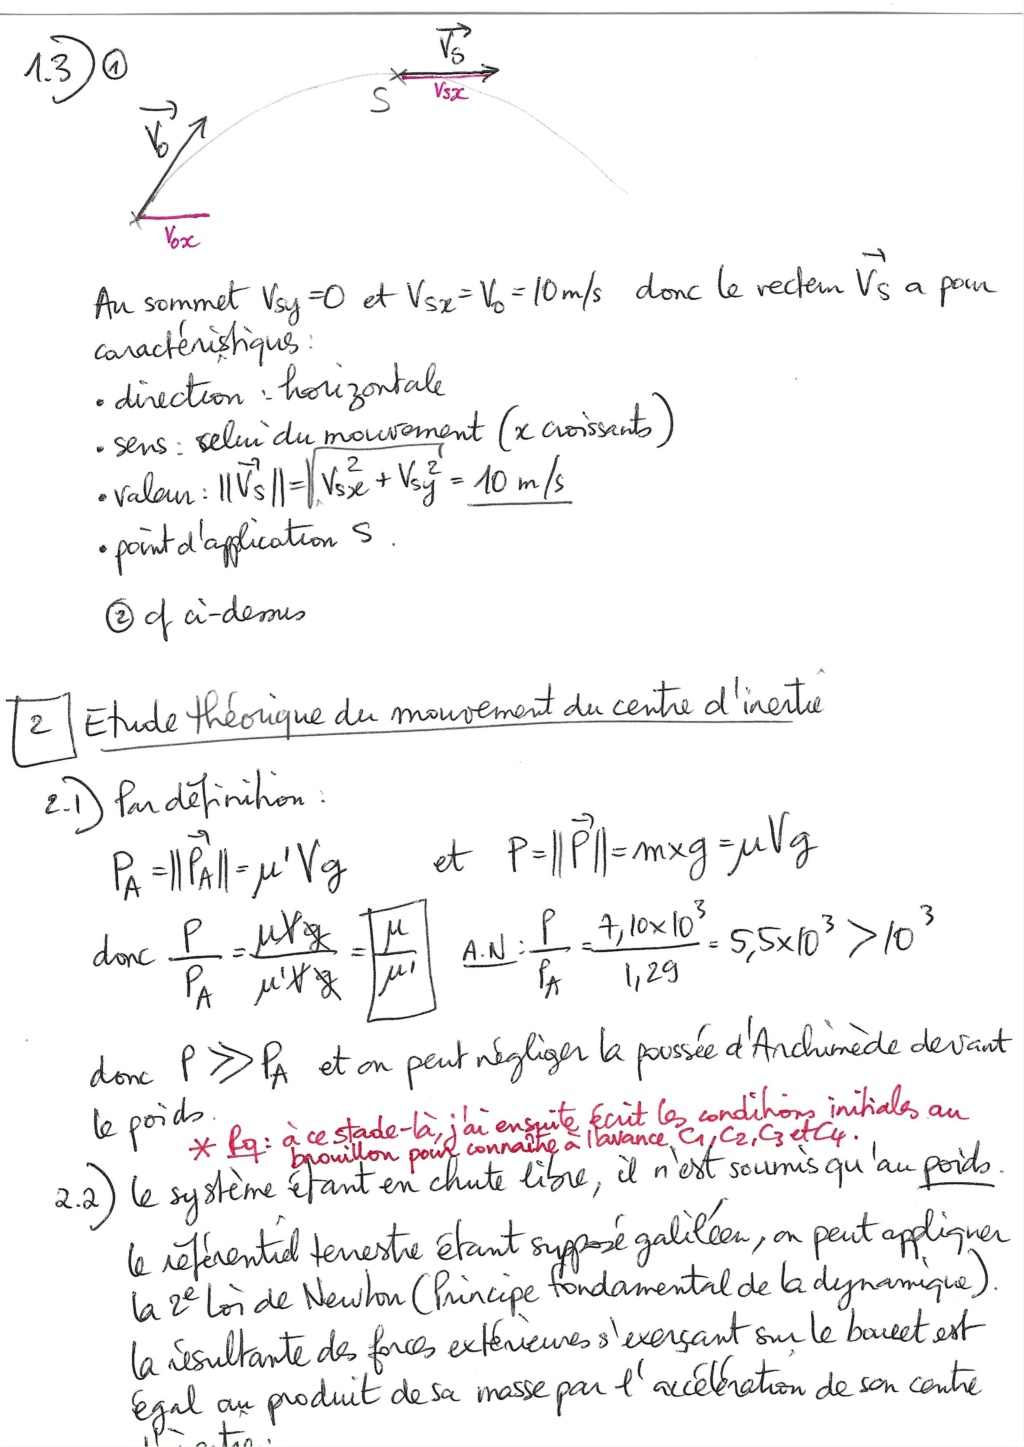 1.3) ①
V₀
V₀x
S
Vs
Vsx
Au sommet Vsy = 0 et Vsx = V₀ = 10 m/s donc le vecteur Vs a pour
caractéristiques :
• direction : horizontale
• sens : celui du mouvement (x croissants)
• valeur : ||Vs|| = √(Vsx² + Vsy²) = 10 m/s
• point d'application S.
② cf ci-dessus
2 Etude théorique du mouvement du centre d'inertie
2.1) Par définition :
P_A = ||P_A|| = μ'Vg et P = ||P|| = m×g = μVg
donc P/P_A = μVg/μ'Vg = μ/μ' A.N : P/P_A = 7,10×10³/1,29 = 5,5×10³ > 10³
donc P ≫ P_A et on peut négliger la poussée d'Archimède devant
le poids.
* Rq : à ce stade-là, j'ai ensuite écrit les conditions initiales au
brouillon pour connaître à l'avance C1, C2, C3 et C4.
2.2) le système étant en chute libre, il n'est soumis qu'au poids.
le référentiel terrestre étant supposé galiléen, on peut appliquer
la 2e Loi de Newton (Principe fondamental de la dynamique).
la résultante des forces extérieures s'exerçant sur le boulet est
égal au produit de sa masse par l'accélération de son centre